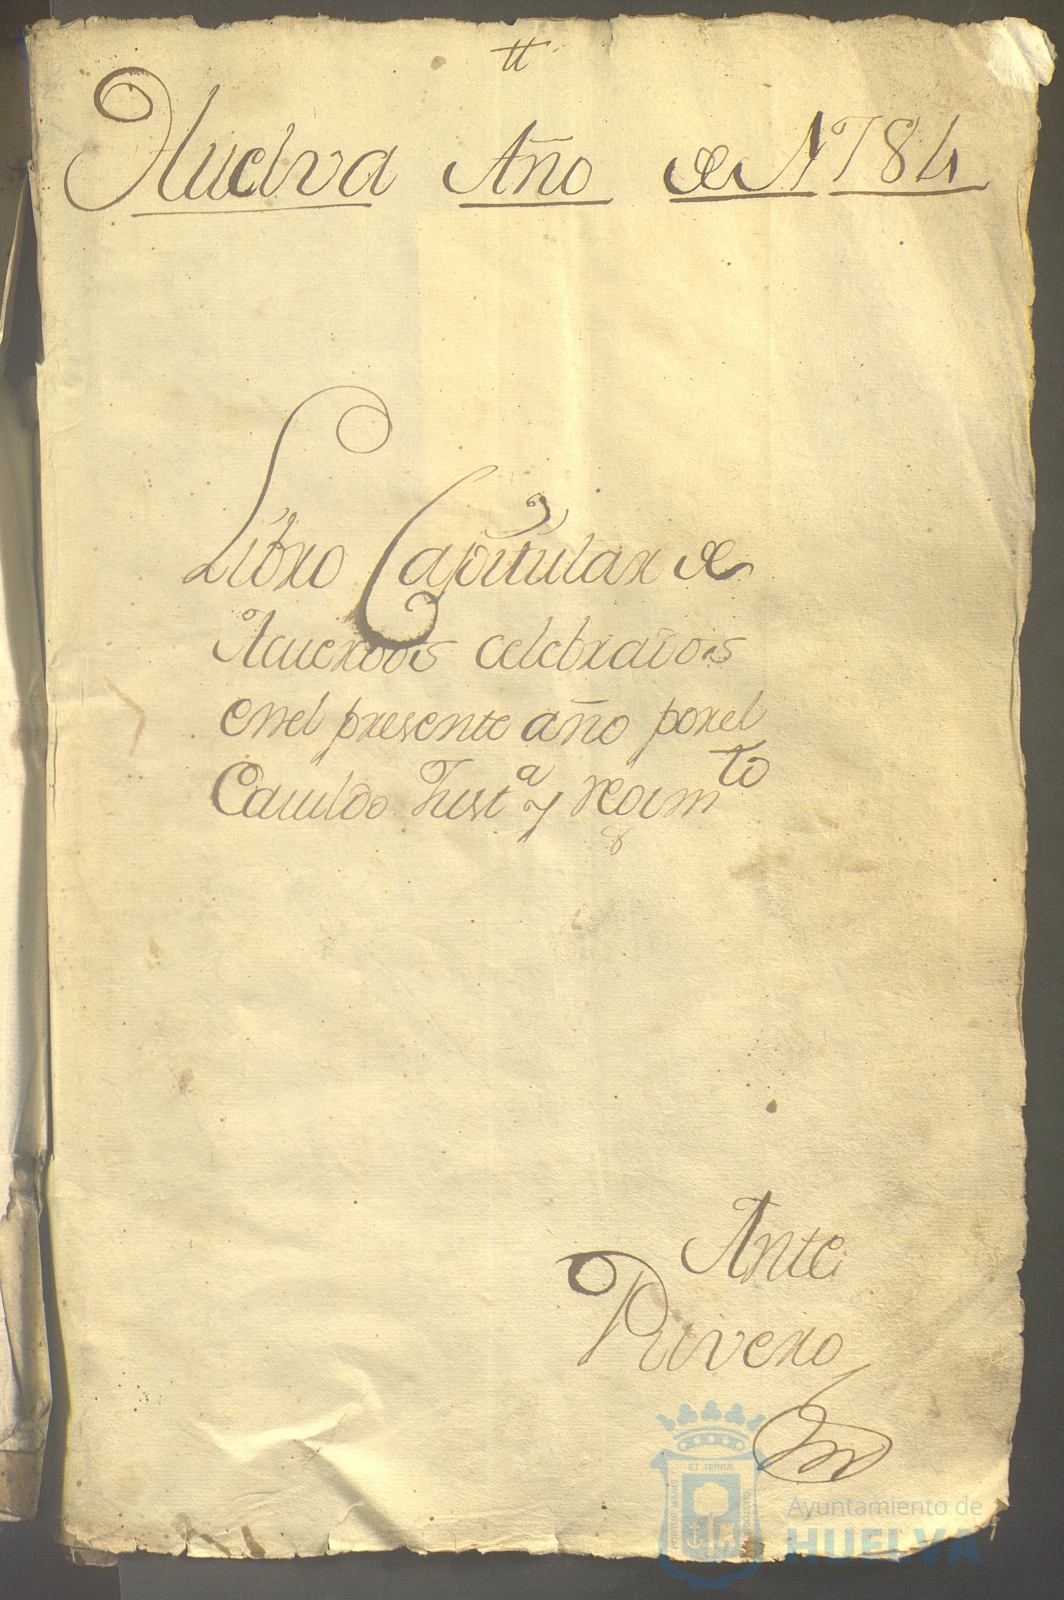 tt
Huelva Año de 1784
Libro Capitular de
Acuerdos celebrados
enel presente año porel
Cavildo Just.ª y regim.to
Ante
Rivero
PORTUS MARIS ET TERRÆ CUSTODIA
Ayuntamiento de
HUELVA